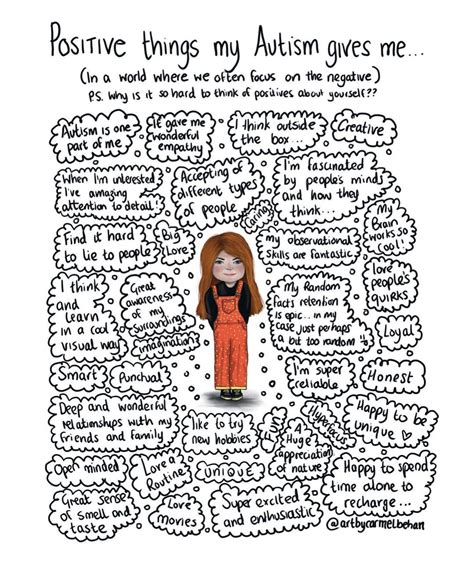 Positive things my Autism gives me...
(In a world where we often focus on the negative)
P.S. Why is it so hard to think of positives about yourself??
Autism is one
part of me
It gave me
wonderful
empathy
I think outside
the box...
Creative
When I'm interested
I've amazing
attention to detail!
Accepting of
different types
of people
Caring
I'm fascinated
by people's minds
and how they
think...
My
Brain
works so
cool!
Find it hard
to lie to people
Big
Love
my observational
skills are fantastic
love
people's
quirks
I think
and
learn
in a cool
visual way
Great
awareness
of my
surroundings
imagination
My Random
facts retention
is epic.. in my
case just perhaps
a bit too random
Loyal
Smart
Punctual
I'm super
reliable
Honest
Deep and wonderful
relationships with my
friends and family
like to try
new hobbies
Fun
A
Huge
appreciation
of nature
Hyperfocus
Happy to be
unique
Open minded
Love a
Routine
UNIQUE
Happy to spend
time alone to
recharge...
Great sense
of smell and
taste
Love
movies
Super excited
and enthusiastic
@artbycarmelbehan